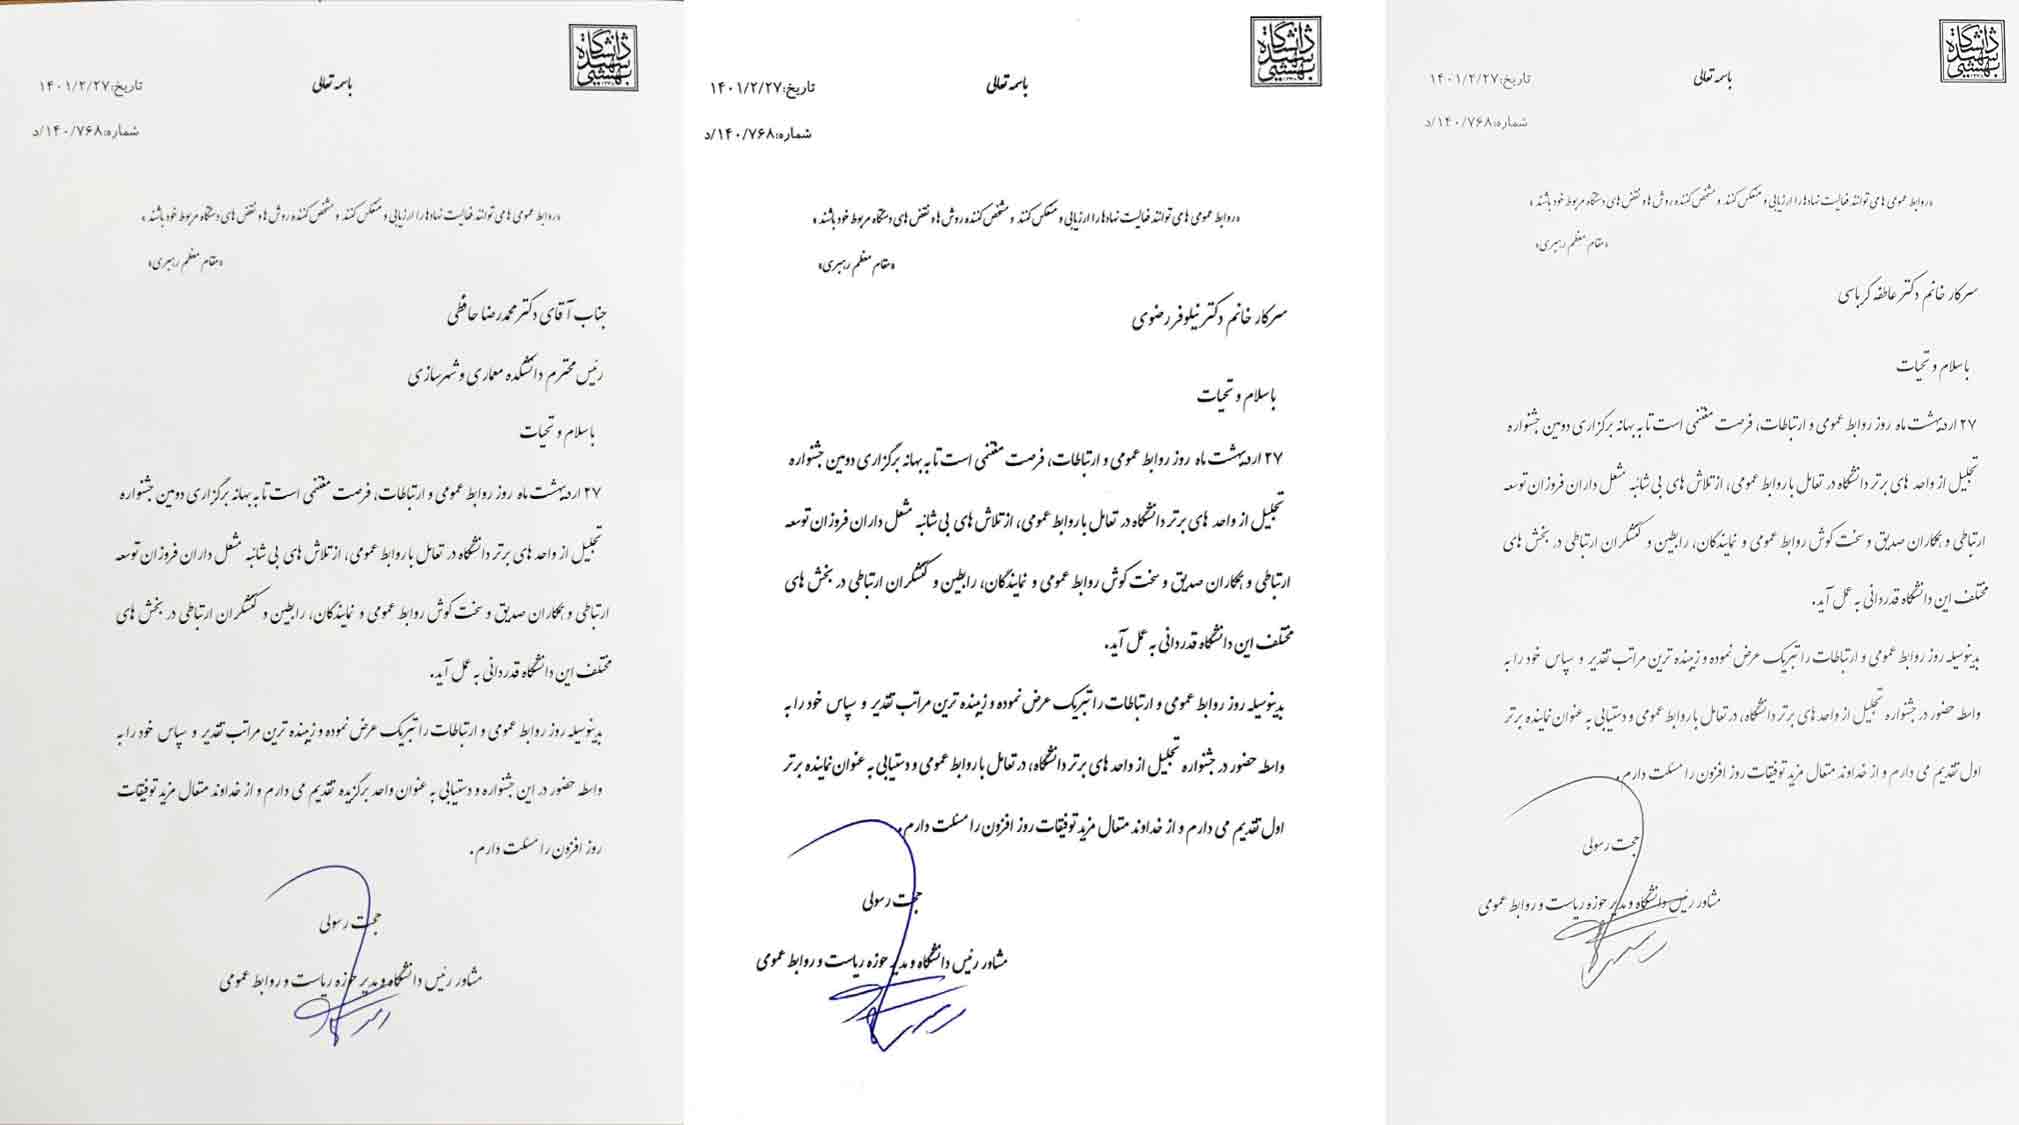 دانشگاه شهید بهشتی
باسمه تعالی
تاریخ:۱۴۰۱/۲/۲۷
شماره:۱۴۰/۷۶۸/د
«روابط عمومی های توانند فعالیت نهادها را ارزیابی و منعکس کنند و مشخص کننده روش ها و نقض های دستگاه مربوط خود باشند»
«مقام معظم رهبری»
سرکار خانم دکتر عاطفه کرباسی
با سلام و تحیات
۲۷ اردیبهشت ماه روز روابط عمومی و ارتباطات، فرصت مغتنمی است تا به بهانه برگزاری دومین جشنواره
تجلیل از واحد های برتر دانشگاه در تعامل با روابط عمومی، از تلاش های بی شائبه مشعل داران فروزان توسعه
ارتباطی و همکاران صدیق و سخت کوش روابط عمومی و نمایندگان، رابطین و کنشگران ارتباطی در بخش های
مختلف این دانشگاه قدردانی به عمل آید.
بدینوسیله روز روابط عمومی و ارتباطات را تبریک عرض نموده و زیبنده ترین مراتب تقدیر و سپاس خود را به
واسطه حضور در جشنواره تجلیل از واحد های برتر دانشگاه، در تعامل با روابط عمومی و دستیابی به عنوان نماینده برتر
اول تقدیم می دارم و از خداوند متعال مزید توفیقات روز افزون را مسئلت دارم.
حجت رسولی
مشاور رئیس دانشگاه و مدیر حوزه ریاست و روابط عمومی
دانشگاه شهید بهشتی
باسمه تعالی
تاریخ:۱۴۰۱/۲/۲۷
شماره:۱۴۰/۷۶۸/د
«روابط عمومی های توانند فعالیت نهادها را ارزیابی و منعکس کنند و مشخص کننده روش ها و نقض های دستگاه مربوط خود باشند»
«مقام معظم رهبری»
سرکار خانم دکتر نیلوفر رضوی
با سلام و تحیات
۲۷ اردیبهشت ماه روز روابط عمومی و ارتباطات، فرصت مغتنمی است تا به بهانه برگزاری دومین جشنواره
تجلیل از واحد های برتر دانشگاه در تعامل با روابط عمومی، از تلاش های بی شائبه مشعل داران فروزان توسعه
ارتباطی و همکاران صدیق و سخت کوش روابط عمومی و نمایندگان، رابطین و کنشگران ارتباطی در بخش های
مختلف این دانشگاه قدردانی به عمل آید.
بدینوسیله روز روابط عمومی و ارتباطات را تبریک عرض نموده و زیبنده ترین مراتب تقدیر و سپاس خود را به
واسطه حضور در جشنواره تجلیل از واحد های برتر دانشگاه، در تعامل با روابط عمومی و دستیابی به عنوان نماینده برتر
اول تقدیم می دارم و از خداوند متعال مزید توفیقات روز افزون را مسئلت دارم.
حجت رسولی
مشاور رئیس دانشگاه و مدیر حوزه ریاست و روابط عمومی
دانشگاه شهید بهشتی
باسمه تعالی
تاریخ:۱۴۰۱/۲/۲۷
شماره:۱۴۰/۷۶۸/د
«روابط عمومی های توانند فعالیت نهادها را ارزیابی و منعکس کنند و مشخص کننده روش ها و نقض های دستگاه مربوط خود باشند»
«مقام معظم رهبری»
جناب آقای دکتر محمدرضا حافظی
رئیس محترم دانشکده معماری و شهرسازی
با سلام و تحیات
۲۷ اردیبهشت ماه روز روابط عمومی و ارتباطات، فرصت مغتنمی است تا به بهانه برگزاری دومین جشنواره
تجلیل از واحد های برتر دانشگاه در تعامل با روابط عمومی، از تلاش های بی شائبه مشعل داران فروزان توسعه
ارتباطی و همکاران صدیق و سخت کوش روابط عمومی و نمایندگان، رابطین و کنشگران ارتباطی در بخش های
مختلف این دانشگاه قدردانی به عمل آید.
بدینوسیله روز روابط عمومی و ارتباطات را تبریک عرض نموده و زیبنده ترین مراتب تقدیر و سپاس خود را به
واسطه حضور در این جشنواره و دستیابی به عنوان واحد برگزیده تقدیم می دارم و از خداوند متعال مزید توفیقات
روز افزون را مسئلت دارم.
حجت رسولی
مشاور رئیس دانشگاه و مدیر حوزه ریاست و روابط عمومی